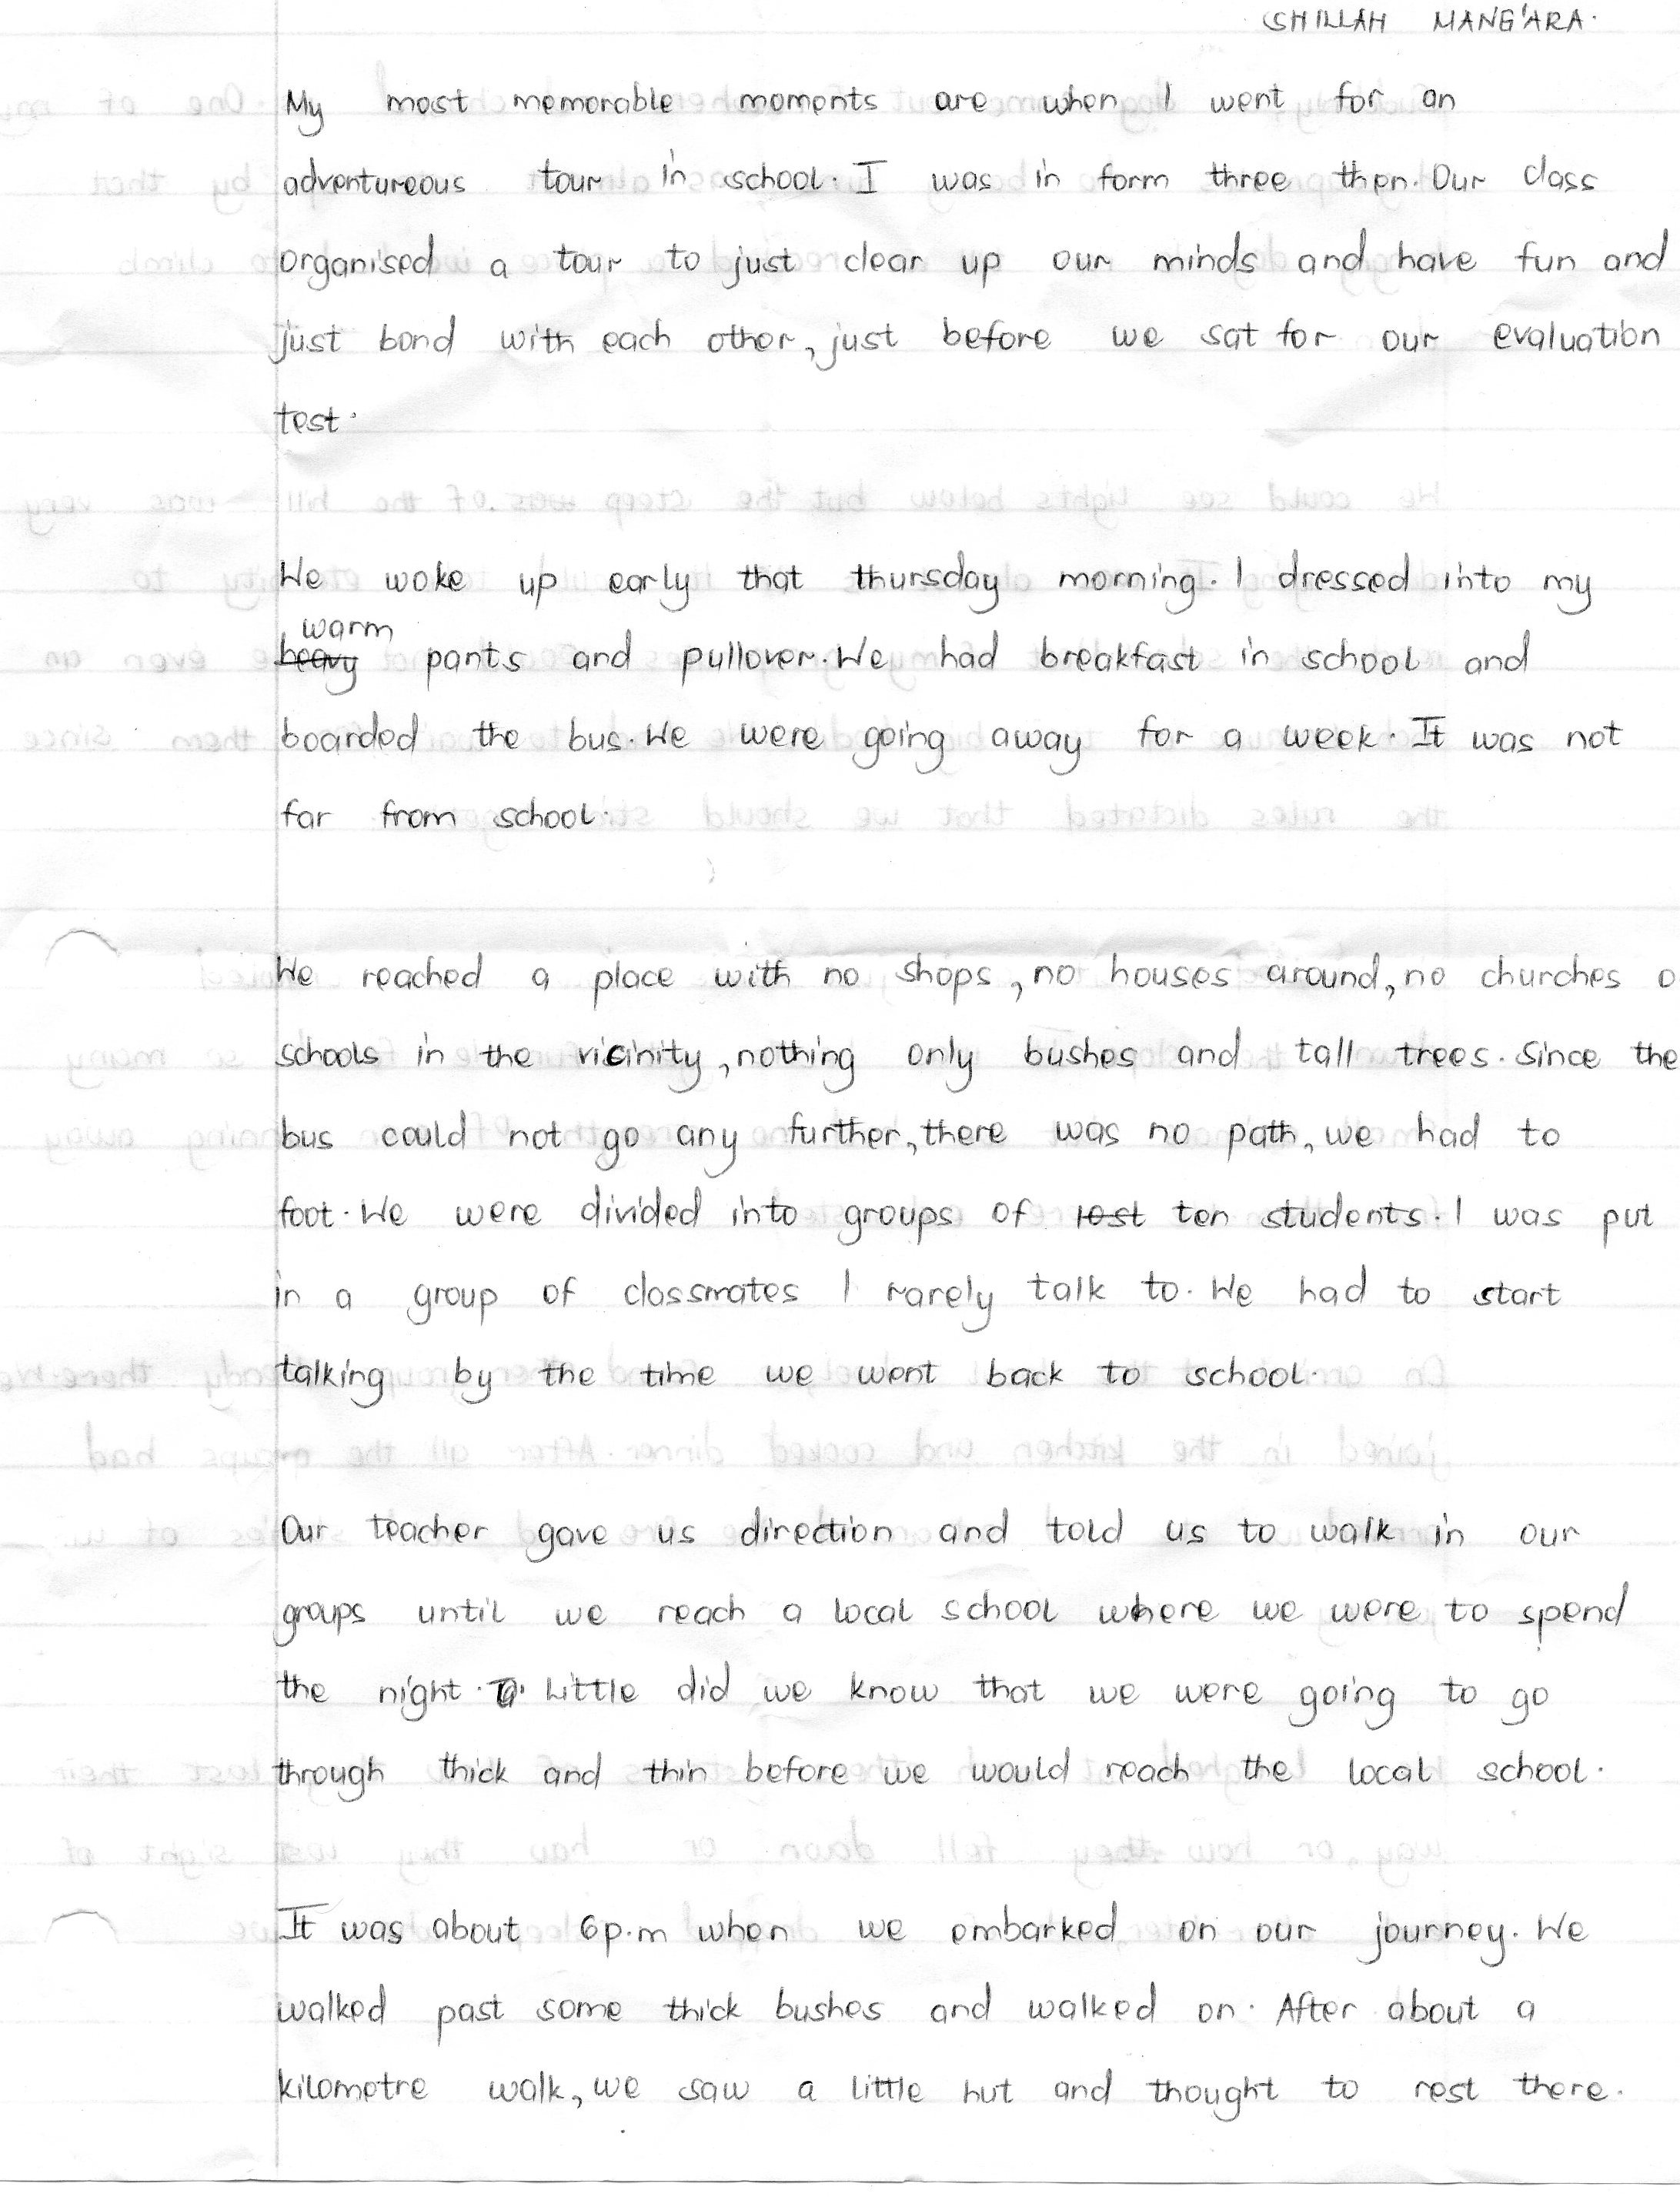 SHILLAH MANG'ARA.
My most memorable moments are when I went for an
adventureous tour in school. I was in form three then. Our class
organised a tour to just clear up our minds and have fun and
just bond with each other, just before we sat for our evaluation
test.
We woke up early that thursday morning. I dressed into my
warm
heavy pants and pullover. We had breakfast in school and
boarded the bus. We were going away for a week. It was not
far from school.
We reached a place with no shops, no houses around, no churches o
schools in the vicinity, nothing only bushes and tall trees. Since the
bus could not go any further, there was no path, we had to
foot. We were divided into groups of ten students. I was put
in a group of classmates I rarely talk to. We had to start
talking by the time we went back to school.
Our teacher gave us direction and told us to walk in our
groups until we reach a local school where we were to spend
the night. Little did we know that we were going to go
through thick and thin before we would reach the local school.
It was about 6p.m when we embarked on our journey. We
walked past some thick bushes and walked on. After about a
kilometre walk, we saw a little hut and thought to rest there.